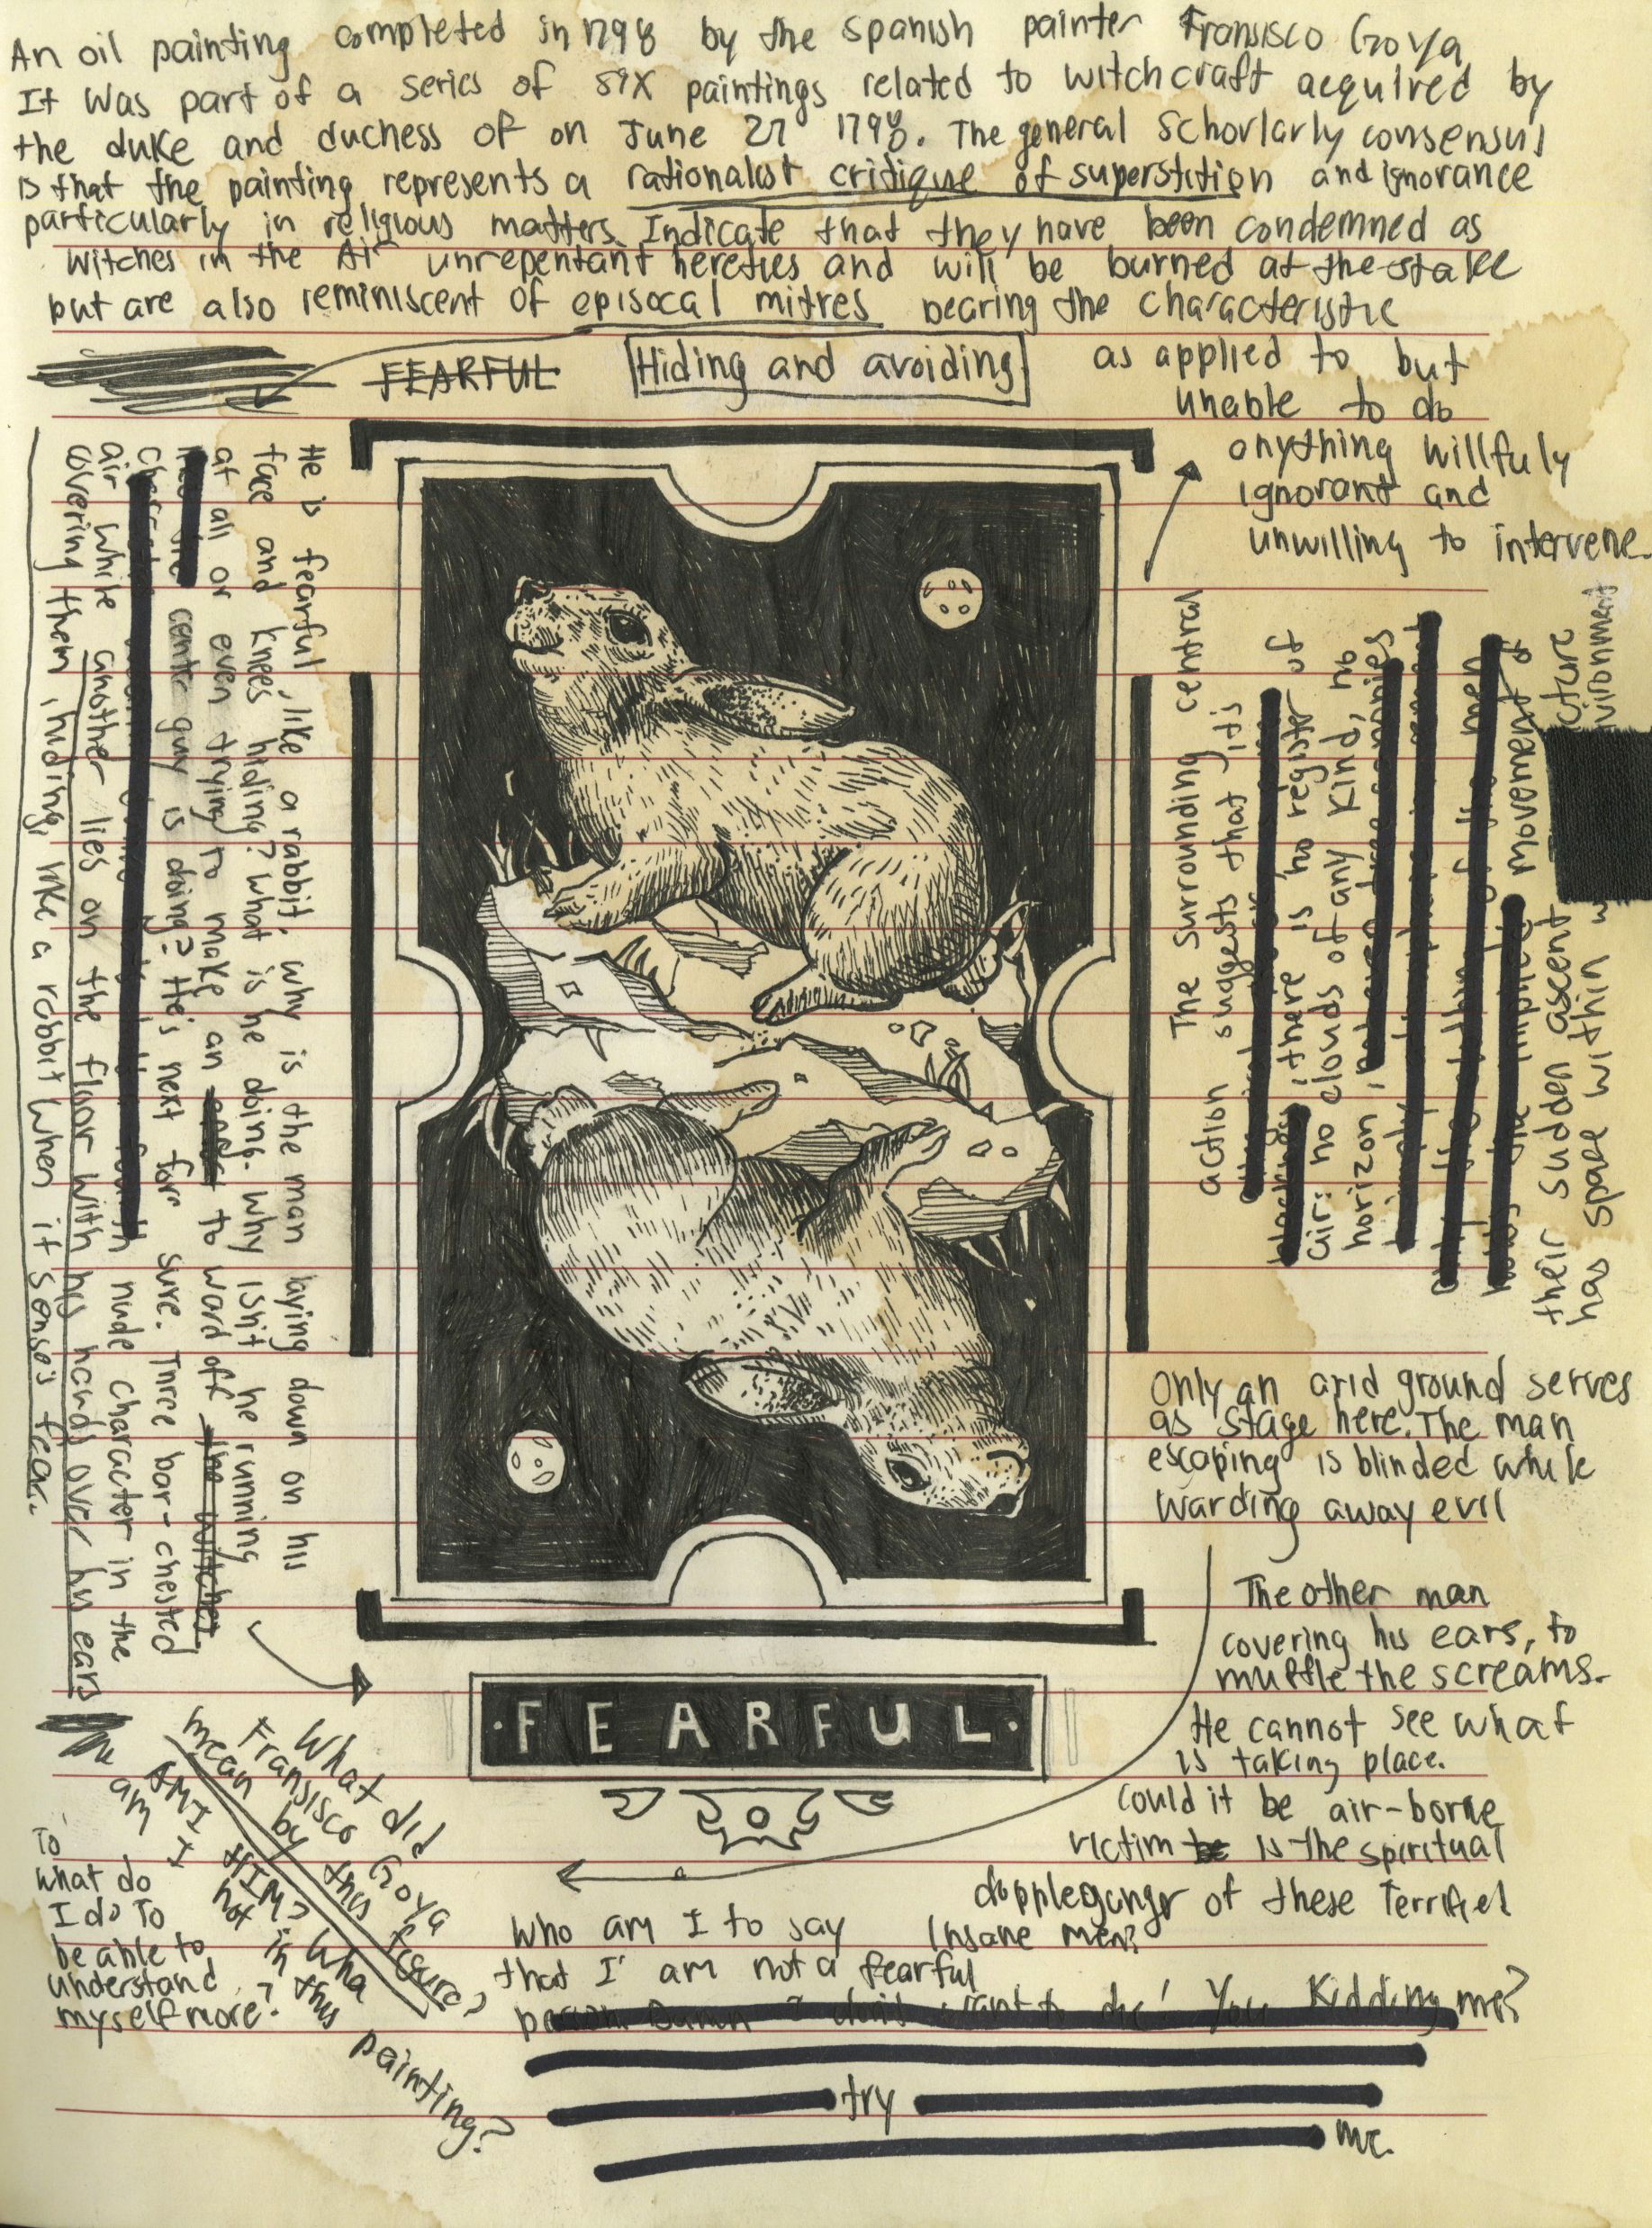 An oil painting completed in 1798 by the spanish painter Fransisco Goya
It was part of a series of six paintings related to witchcraft acquired by
the duke and duchess of on June 27 1798. The general schorlarly consensus
is that the painting represents a rationalist critique of superstition and ignorance
particularly in religious matters. Indicate that they have been condemned as
witches in the unrepentant and will be burned at the stake
but are also reminiscent of episocal mitres bearing the characteristic
FEARFUL
Hiding and avoiding
as applied to but
unable to do
anything willfuly
ignorant and
unwilling to intervene.
He is fearful, like a rabbit, why is the man laying down on his
face and knees hiding? what is he doing. why isn't he running
at all or even trying to make an to ward off the witches
guy is doing? He's next for sure. Three bar-chested
nude character in the
air while another lies on the floor with his hands over his ears
covering them, hiding, like a rabbit when it senses fear.
The surrounding central
action suggests that it's
; there is no register of
air: no clouds of any kind, no
horizon,
movement of
their sudden ascent
has space within
Only an arid ground serves
as stage here. The man
escaping is blinded while
warding away evil
The other man
covering his ears, to
muffle the screams.
He cannot see what
is taking place.
could it be air-borne
victim be is the spiritual
of these terrified
insane men?
·FEARFUL·
What did
Fransisco Goya
mean by this figure?
AM I HIM? Who
am I not in this painting?
To
what do
I do To
be able to
understand
myself more?
Who am I to say
that I am not a fearful
You Kidding me?
try
me.